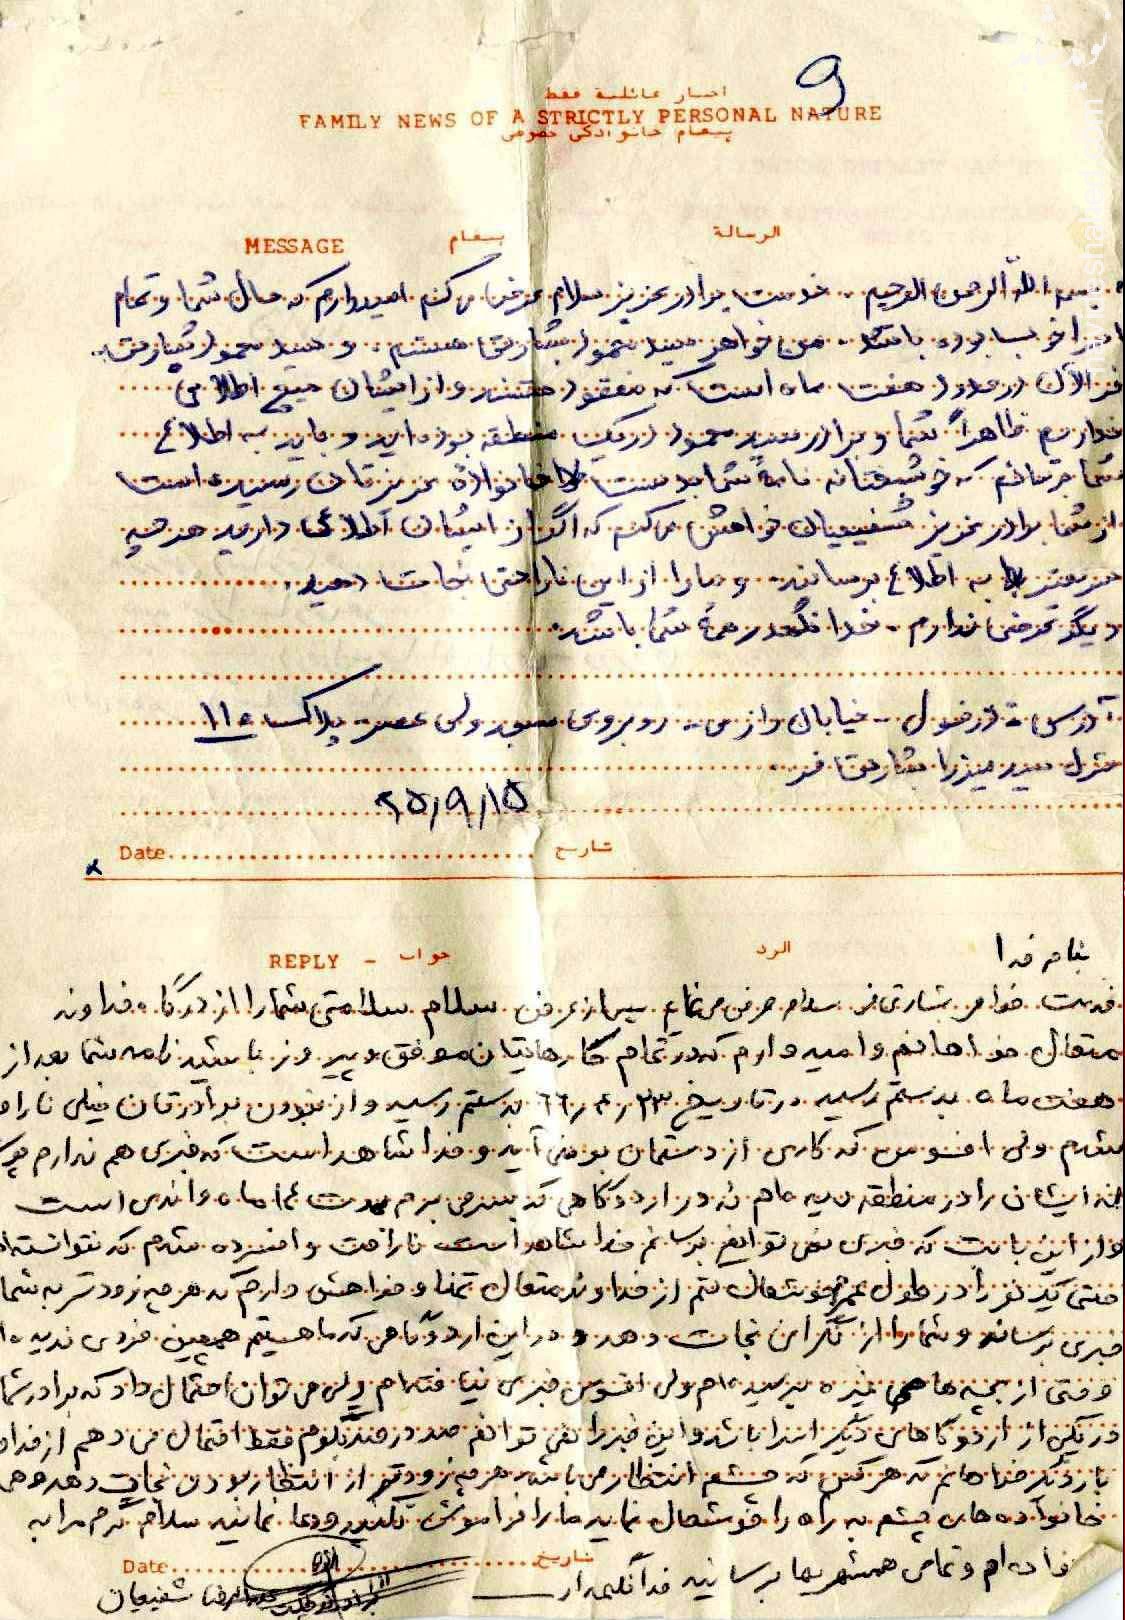 ۹
اخبار عائلية فقط
FAMILY NEWS OF A STRICTLY PERSONAL NATURE
پیغام خانوادگی خصوصی
MESSAGE پیغام الرسالة
بسم الله الرحمن الرحیم - خدمت برادر عزیز سلام عرض می کنم امیدوارم که حال شما و تمام
خوب بوده باشد. من خواهر سید محمود بشارتی هستم. و سید محمود بشارتی
فر الآن در حدود هفت ماه است که مفقود هستند و از ایشان هیچ اطلاعی
نداریم ظاهراً شما و برادر سید محمود در یک منطقه بوده اید و باید به اطلاع
شما برسانم که خوشبختانه نامهٔ شما بدست خانوادهٔ عزیزتان رسیده است
از شما برادر عزیز شفیعیان خواهش می کنم که اگر از ایشان اطلاعی دارید هر چه
سریعتر به اطلاع برسانید و ما را از این ناراحتی نجات دهید.
دیگر عرضی ندارم - خدا نگهدار همهٔ شما باشد.
آدرس: دزفول - خیابان رازی - روبروی مسجد ولی عصر - پلاک ۱۱۰
منزل سید میرزا بشارتی فر
۶۵/۹/۱۵
Date تاریخ
REPLY - جواب الرد
بنام خدا
خدمت خواهر بشارتی فر سلام عرض می نمایم پس از عرض سلام سلامتی شما را از درگاه خداوند
متعال خواهانم و امیدوارم که در تمام کارهایتان موفق و پیروز باشید نامه شما بعد از
هفت ماه بدستم رسید در تاریخ ۶۶/۴/۲۳ بدستم رسید و از نبودن برادرتان خیلی ناراحت
شدم ولی افسوس که کاری از دستمان بر نمی آید و خدا شاهد است که خبری هم ندارم چونکه
نه ایشان را در منطقه دیده ام نه در اردوگاهی که بسر می برم مدت ۱۴ ماه و اندی است
و از این بابت که خبری نمی توانم برسانم خدا شاهد است ناراحت و افسرده شدم که نتوانسته ام
حتی یک نفر را در طول عمرم خوشحال کنم از خداوند متعال تمنا و خواهش دارم که هر چه زودتر به شما
خبری برساند و شما را از نگرانی نجات دهد و در این اردوگاهی که ما هستیم همچین فردی ندیده ام
و حتی از بچه ها هم غیره پرسیده ام ولی افسوس خبری نیافته ام ولی می توان احتمال داد که برادر شما
در یکی از اردوگاههای دیگر اسرا باشد و این خبر را نمی توانم صد در صد بگویم فقط احتمال می دهم از خدا
بار دیگر خواهانم که هر کس که چشم انتظار می باشد هر چه زودتر از انتظار بودن نجات دهد و همه
خانواده های چشم به راه را خوشحال نماید ما را فراموش نکنید و دعا نمائید سلام گرم مرا به
خانواده ام و تمامی همشهریها برسانید خدانگهدار
Date تاریخ
شفیعیان